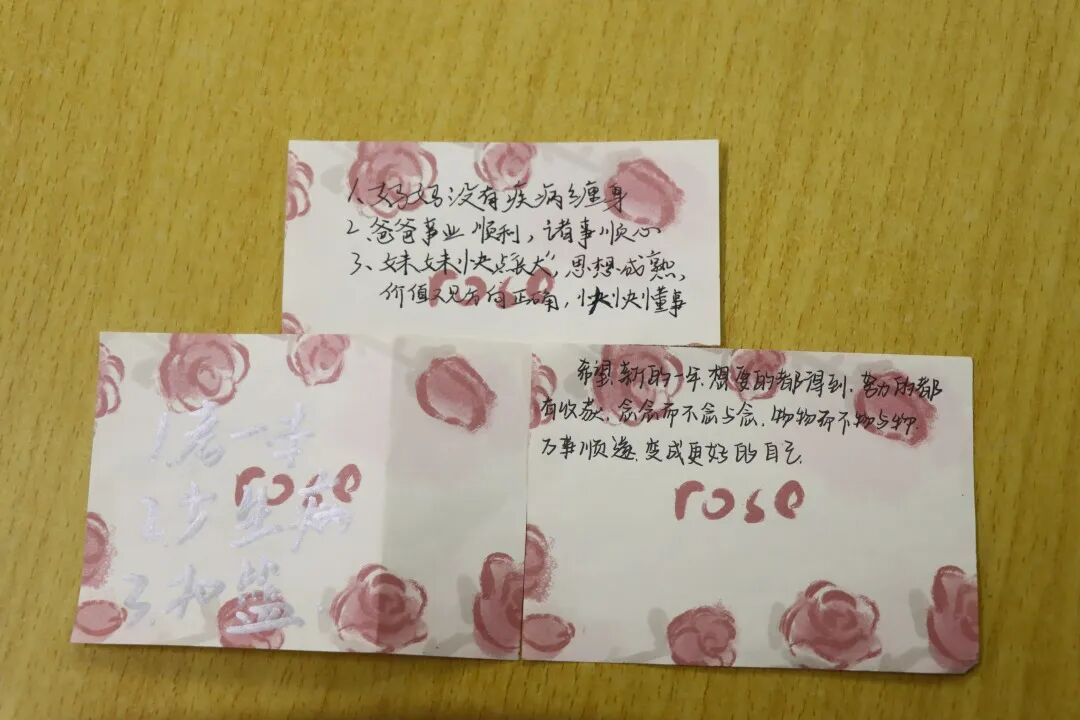 1、妈妈没有疾病缠身
2、爸爸事业顺利，诸事顺心
3、妹妹快点“长大”，思想成熟，
价值观方向正确，快快懂事
rose
1.考一本
2.少生病
3.加
rose
希望新的一年，想要的都得到，努力的都
有收获，念念而不念与念，物物而不物与物
万事顺遂，变成更好的自己.
rose